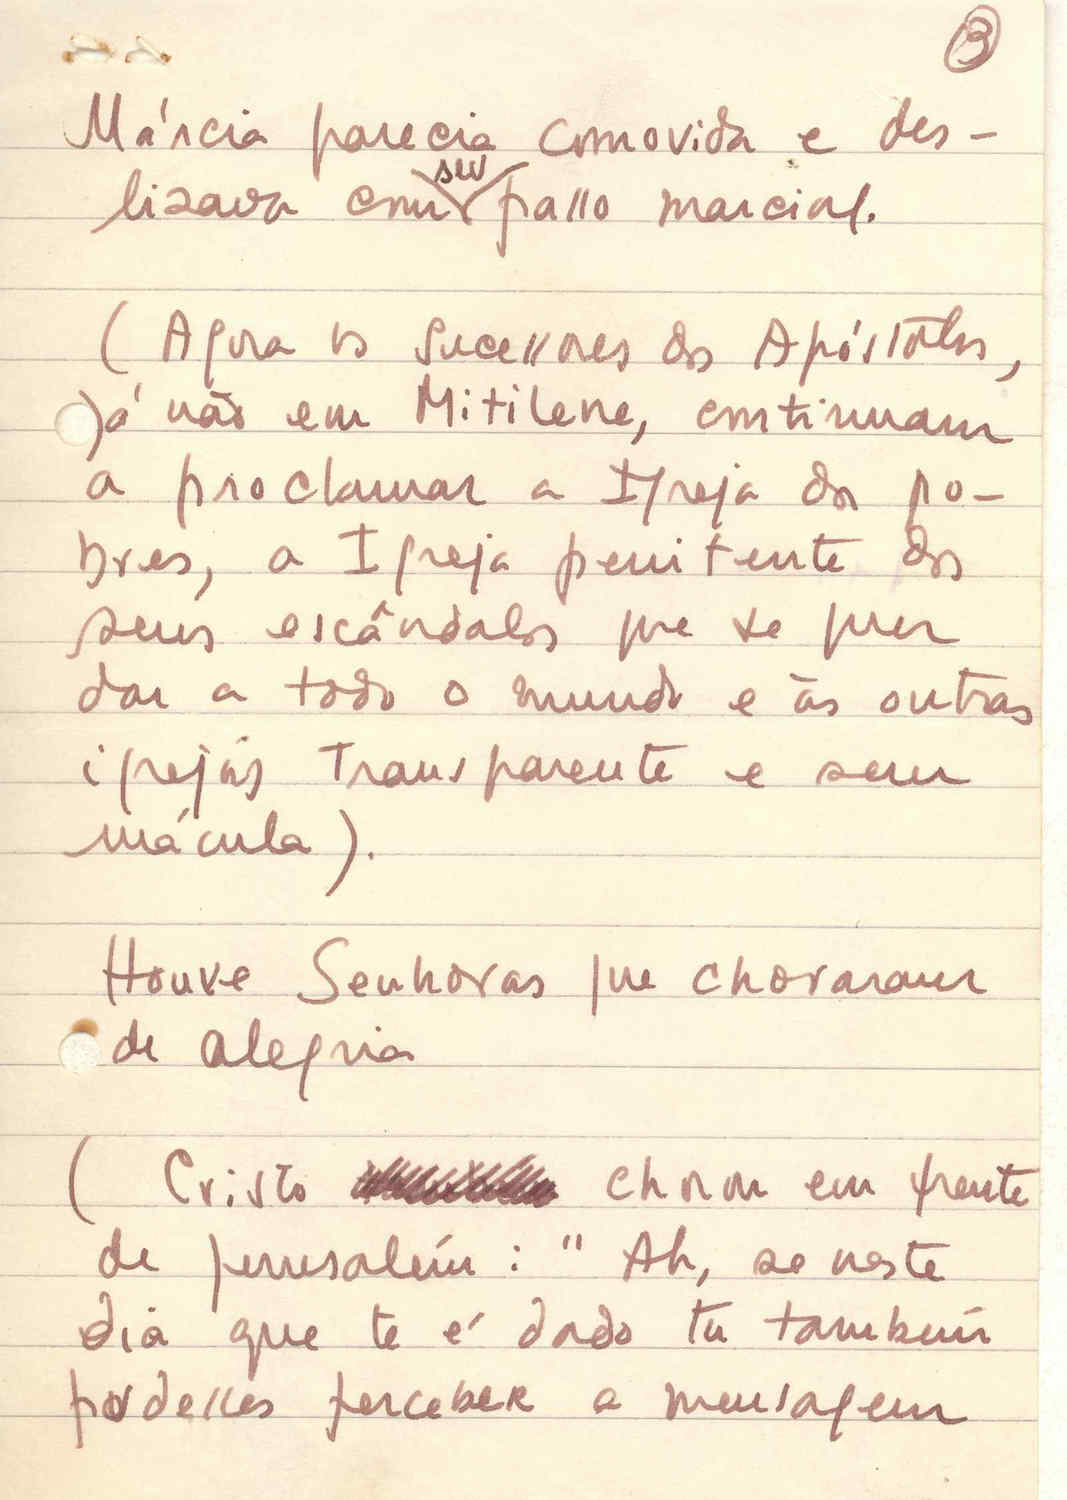 3
Márcia parecia comovida e des-
lizava com seu passo marcial.
(Agora os sucessores dos Apóstolos,
já não em Mitilene, continuam
a proclamar a Igreja dos po-
bres, a Igreja penitente dos
seus escândalos que se quer
dar a todo o mundo e às outras
igrejas transparente e sem
mácula).
Houve Senhoras que choraram
de alegria
(Cristo chorou em frente
de Jerusalém: "Ah, se neste
dia que te é dado tu também
pudesses perceber a mensagem